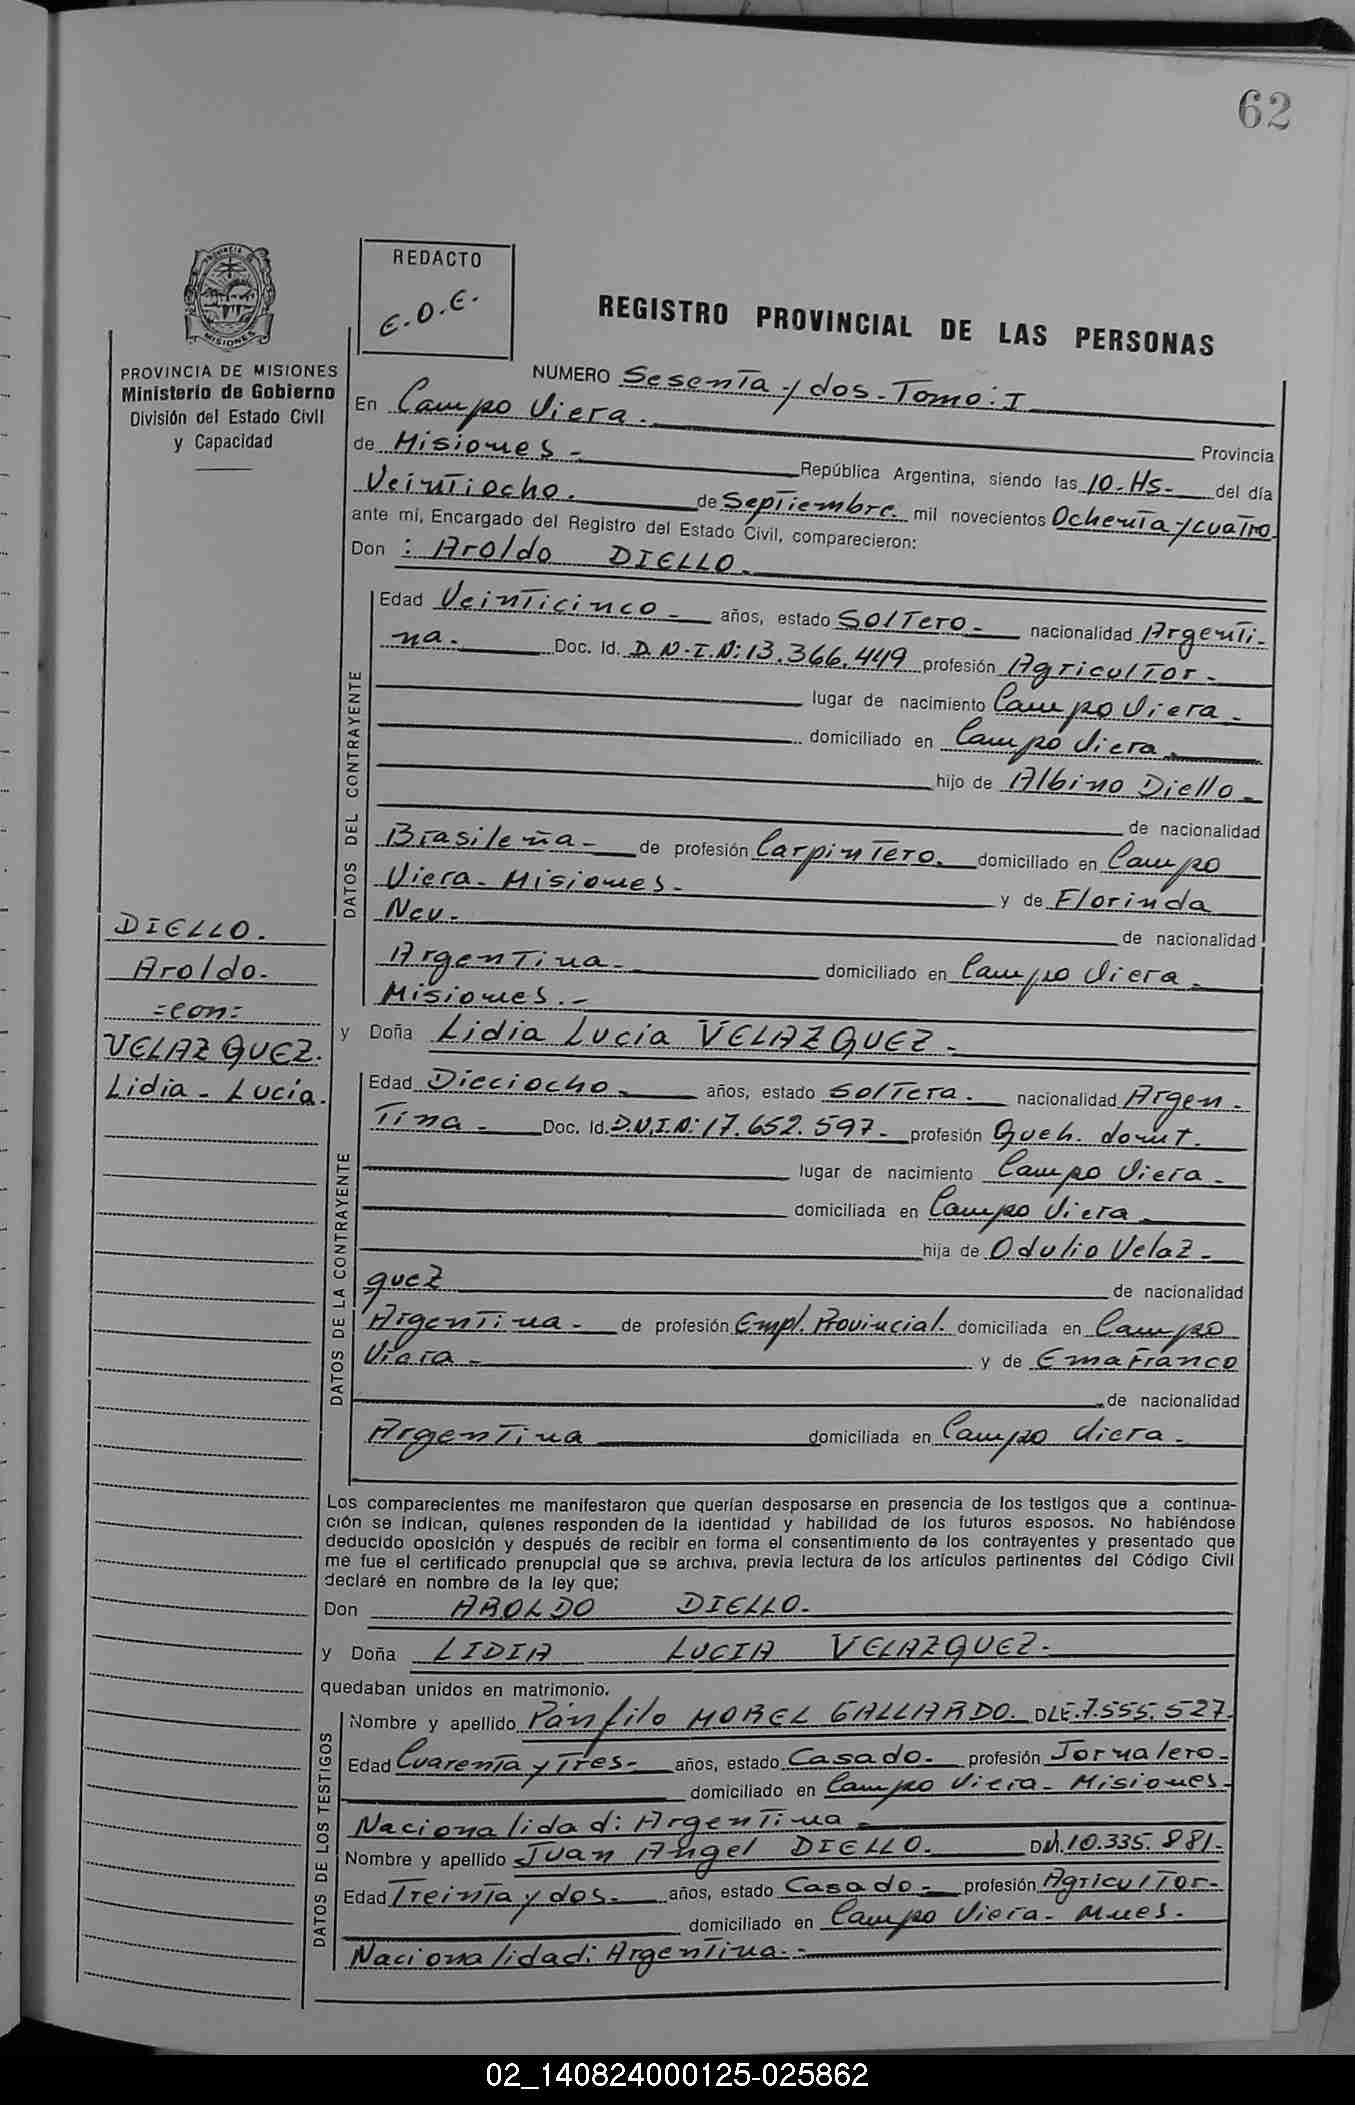 62
REDACTO
E.O.E.
REGISTRO PROVINCIAL DE LAS PERSONAS
MISIONES
PROVINCIA DE MISIONES
Ministerio de Gobierno
División del Estado Civil
y Capacidad
NUMERO Sesenta y dos - Tomo: I
En Campo Viera.
Provincia
de Misiones - República Argentina, siendo las 10-Hs- del día
Veintiocho. de Septiembre mil novecientos Ochenta y cuatro
ante mí, Encargado del Registro del Estado Civil, comparecieron:
Don : Aroldo DIELLO.
DATOS DEL CONTRAYENTE
Edad Veinticinco - años, estado Soltero - nacionalidad Argenti-
na. Doc. Id. D.N.I.N: 13.366.449 profesión Agricultor -
lugar de nacimiento Campo Viera -
domiciliado en Campo Viera -
hijo de Albino Diello -
de nacionalidad
Brasileña - de profesión Carpintero. domiciliado en Campo
Viera - Misiones - y de Florinda
Neu. de nacionalidad
Argentina - domiciliado en Campo Viera -
Misiones. -
DIELLO.
Aroldo.
=con=
VELAZQUEZ.
Lidia - Lucia.
y Doña Lidia Lucia VELAZQUEZ -
DATOS DE LA CONTRAYENTE
Edad Dieciocho - años, estado Soltera. nacionalidad Argen -
tina - Doc. Id. D.N.I.N: 17.652.597 - profesión Queh. domt.
lugar de nacimiento Campo Viera -
domiciliada en Campo Viera -
hija de Odulio Velaz -
quez de nacionalidad
Argentina - de profesión Empl. Provincial. domiciliada en Campo
Viera - y de Ema Franco
de nacionalidad
Argentina domiciliada en Campo Viera -
Los comparecientes me manifestaron que querían desposarse en presencia de los testigos que a continua-
ción se indican, quienes responden de la identidad y habilidad de los futuros esposos. No habiéndose
deducido oposición y después de recibir en forma el consentimiento de los contrayentes y presentado que
me fue el certificado prenupcial que se archiva, previa lectura de los artículos pertinentes del Código Civil
declaré en nombre de la ley que;
Don AROLDO DIELLO.
y Doña LIDIA LUCIA VELAZQUEZ -
quedaban unidos en matrimonio.
DATOS DE LOS TESTIGOS
Nombre y apellido Pánfilo MOREL GALLARDO. DLE. 7.555.527.
Edad Cuarenta y Tres - años, estado Casado - profesión Jornalero -
domiciliado en Campo Viera - Misiones -
Nacionalidad: Argentina -
Nombre y apellido Juan Angel DIELLO. DNI. 10.335.881.
Edad Treinta y dos. años, estado Casado - profesión Agricultor -
domiciliado en Campo Viera - Mnes.
Nacionalidad: Argentina. -
02_140824000125-025862